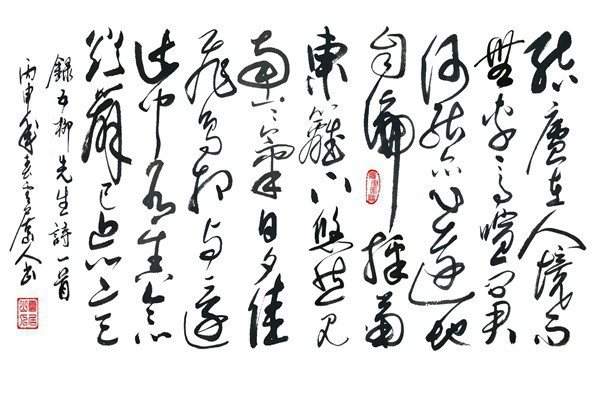 結廬在人境而
無車馬喧問君
何能尔心遠地
自偏採菊
東籬下悠然見
南山〻氣日夕佳
飛鳥相與還
此中有真意
欲辨已忘言
錄五柳先生詩一首
丙申年春人书